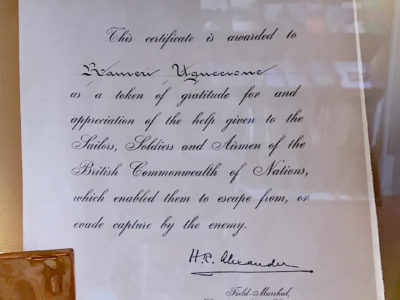 This certificate is awarded to
Ranieri
as a token of gratitude for and
appreciation of the help given to the
Sailors, Soldiers and Airmen of the
British Commonwealth of Nations,
which enabled them to escape from, or
evade capture by the enemy.
H.R. Alexander
Field-Marshal,